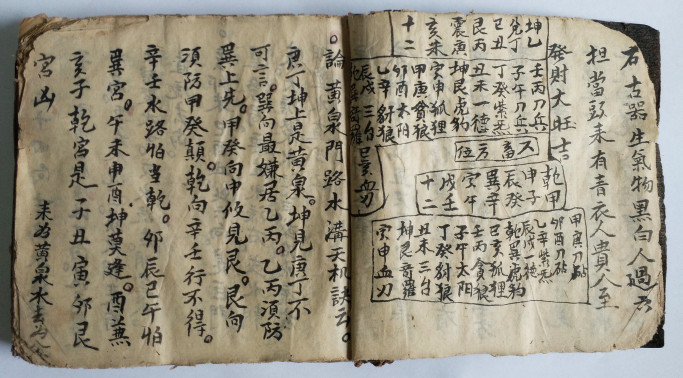 石古器生氣物黑白人過方
担當致來有青衣人貴人至
發財大旺吉
坤乙
兌丁
巳丑
艮丙
震庚
亥未
十二
壬丙刀兵
子午刀兵
丁癸紫炁
丑未一德
坤艮虎豹
寅申狐狸
甲庚貪狼
卯酉太阳
乙辛豺狼
辰戌三台
奇羅
巳亥血刃
六畜方位
乾甲
申子
辰癸
巽辛
寅午
戌壬
十二
甲庚刀砧
卯酉刀砧
乙辛紫炁
辰戌一德
乾巽虎豹
巳亥狐狸
壬丙貪狼
子午太阳
丁癸豺狼
丑未三台
坤艮奇羅
寅申血刃
論黃泉門路水溝天机訣云。
庚丁坤上是黃泉。坤見庚丁不
可言。巽向最嫌君乙丙。乙丙須防
巽上先。甲癸向中攸見艮。艮向
須防甲癸顛。乾向辛壬行不得。
辛壬水路怕当乾。卯辰巳午怕
巽宮。午未申酉坤莫逢。酉兼
亥子乾宮是子丑寅卯艮
宮凶
未為黃泉水去為